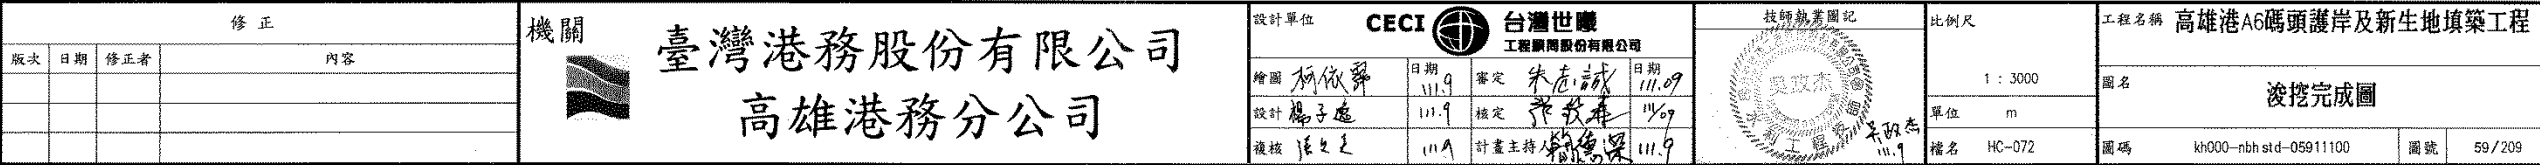 修 正
版次 日期 修正者 內容
機關
臺灣港務股份有限公司
高雄港務分公司
設計單位 CECI 台灣世曦
工程顧問股份有限公司
繪圖 日期 111.9 審定 朱志誠 日期 111.09
設計 111.9 核定 111/09
複核 111.9 計畫主持人 111.9
技師執業圖記
吳政杰
吳政杰
111.9
比例尺
1 : 3000
單位 m
檔名 HC-072
工程名稱 高雄港A6碼頭護岸及新生地填築工程
圖名
浚挖完成圖
圖碼 kh000-nbhstd-05911100 圖號 59/209